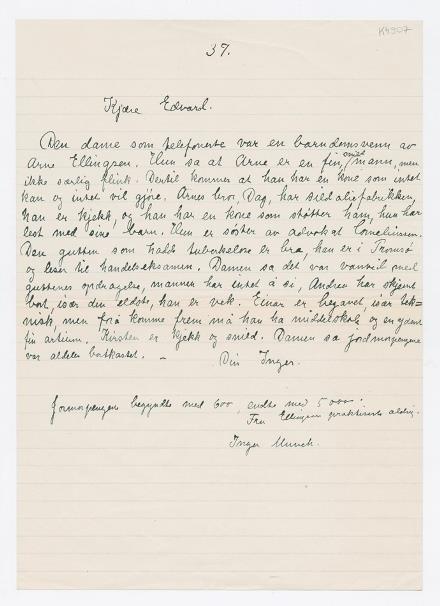 K4907
37.
Kjære Edvard.
Den dame som telefonerte var en barndomsvenn av
Arne Ellingsen. Hun sa at Arne er en fin, snild mann, men
ikke særlig flink. Dertil kommer at han har en kone som intet
kan og intet vil gjøre. Arnes bror, Dag, har sildoljefabrikken,
han er kjekk, og han har en kone som støtter ham, hun har
lest med sine barn. Hun er søster av advokat Corneliussen.
Den gutten som hadde tuberkulose er bra, han er i Tromsø
og leser til handelseksamen. Damen sa det var vanstil med
guttenes opdragelse, mannen har intet å si, Andrea har skjemt
bort, især den eldste, han er vek. Einar er begavet, især tek-
nisk, men for å komme frem må han ha middelskole og en
fin artium. Kirsten er kjekk og snild. Damen sa jordmorpengene
var aldeles bortkastet. –
Din Inger.
Jormorpengene begyndte med 600, endte med 5000.
Fru Ellingsen praktiserte aldrig.
Inger Munch.